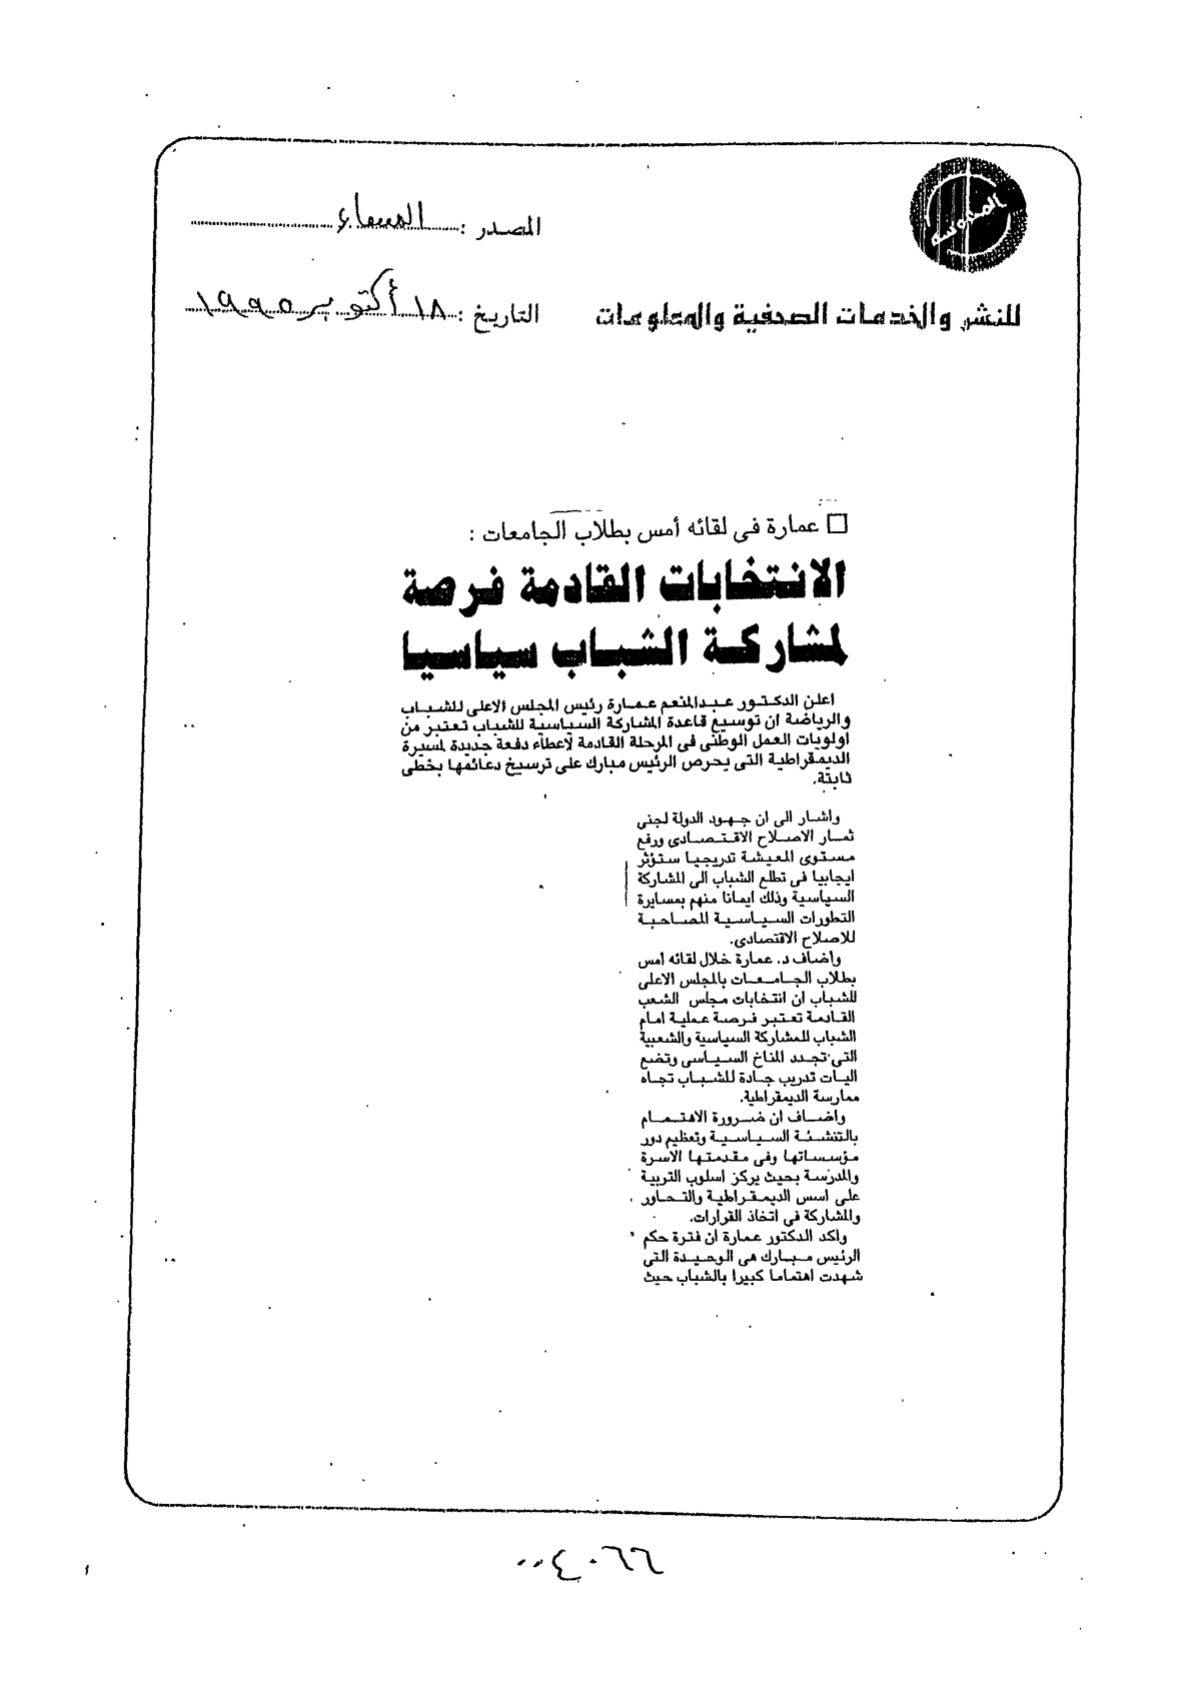 المحروسة
المصدر : المساء
للنشر والخدمات الصحفية والمعلومات
التاريخ : ١٨ أكتوبر ١٩٩٥
عمارة فى لقائه أمس بطلاب الجامعات :
الانتخابات القادمة فرصة
لمشاركة الشباب سياسيا
اعلن الدكتور عبدالمنعم عمارة رئيس المجلس الاعلى للشباب
والرياضة ان توسيع قاعدة المشاركة السياسية للشباب تعتبر من
اولويات العمل الوطنى فى المرحلة القادمة لاعطاء دفعة جديدة لمسيرة
الديمقراطية التى يحرص الرئيس مبارك على ترسيخ دعائمها بخطى
ثابتة.
واشار الى ان جهود الدولة لجنى
ثمار الاصلاح الاقتصادى ورفع
مستوى المعيشة تدريجيا ستؤثر
ايجابيا فى تطلع الشباب الى المشاركة
السياسية وذلك ايمانا منهم بمسايرة
التطورات السياسية المصاحبة
للاصلاح الاقتصادى.
واضاف د. عمارة خلال لقائه امس
بطلاب الجامعات بالمجلس الاعلى
للشباب ان انتخابات مجلس الشعب
القادمة تعتبر فرصة عملية امام
الشباب للمشاركة السياسية والشعبية
التى تجدد المناخ السياسى وتضع
اليات تدريب جادة للشباب تجاه
ممارسة الديمقراطية.
واضاف ان ضرورة الاهتمام
بالتنشئة السياسية وتعظيم دور
مؤسساتها وفى مقدمتها الاسرة
والمدرسة بحيث يركز اسلوب التربية
على اسس الديمقراطية والتحاور
والمشاركة فى اتخاذ القرارات.
واكد الدكتور عمارة ان فترة حكم
الرئيس مبارك هى الوحيدة التى
شهدت اهتماما كبيرا بالشباب حيث